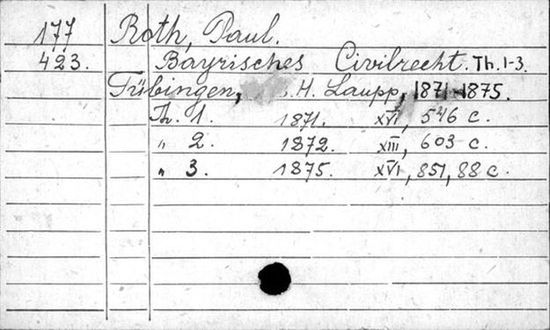 177 Roth, Paul.
423. Bayrisches Civilrecht. Th. 1-3.
Tübingen, H. Laupp, 1871-1875.
Th. 1. 1871. XVI, 546 c.
„ 2. 1872. XIII, 603 c.
„ 3. 1875. XVI, 851, 88 c.